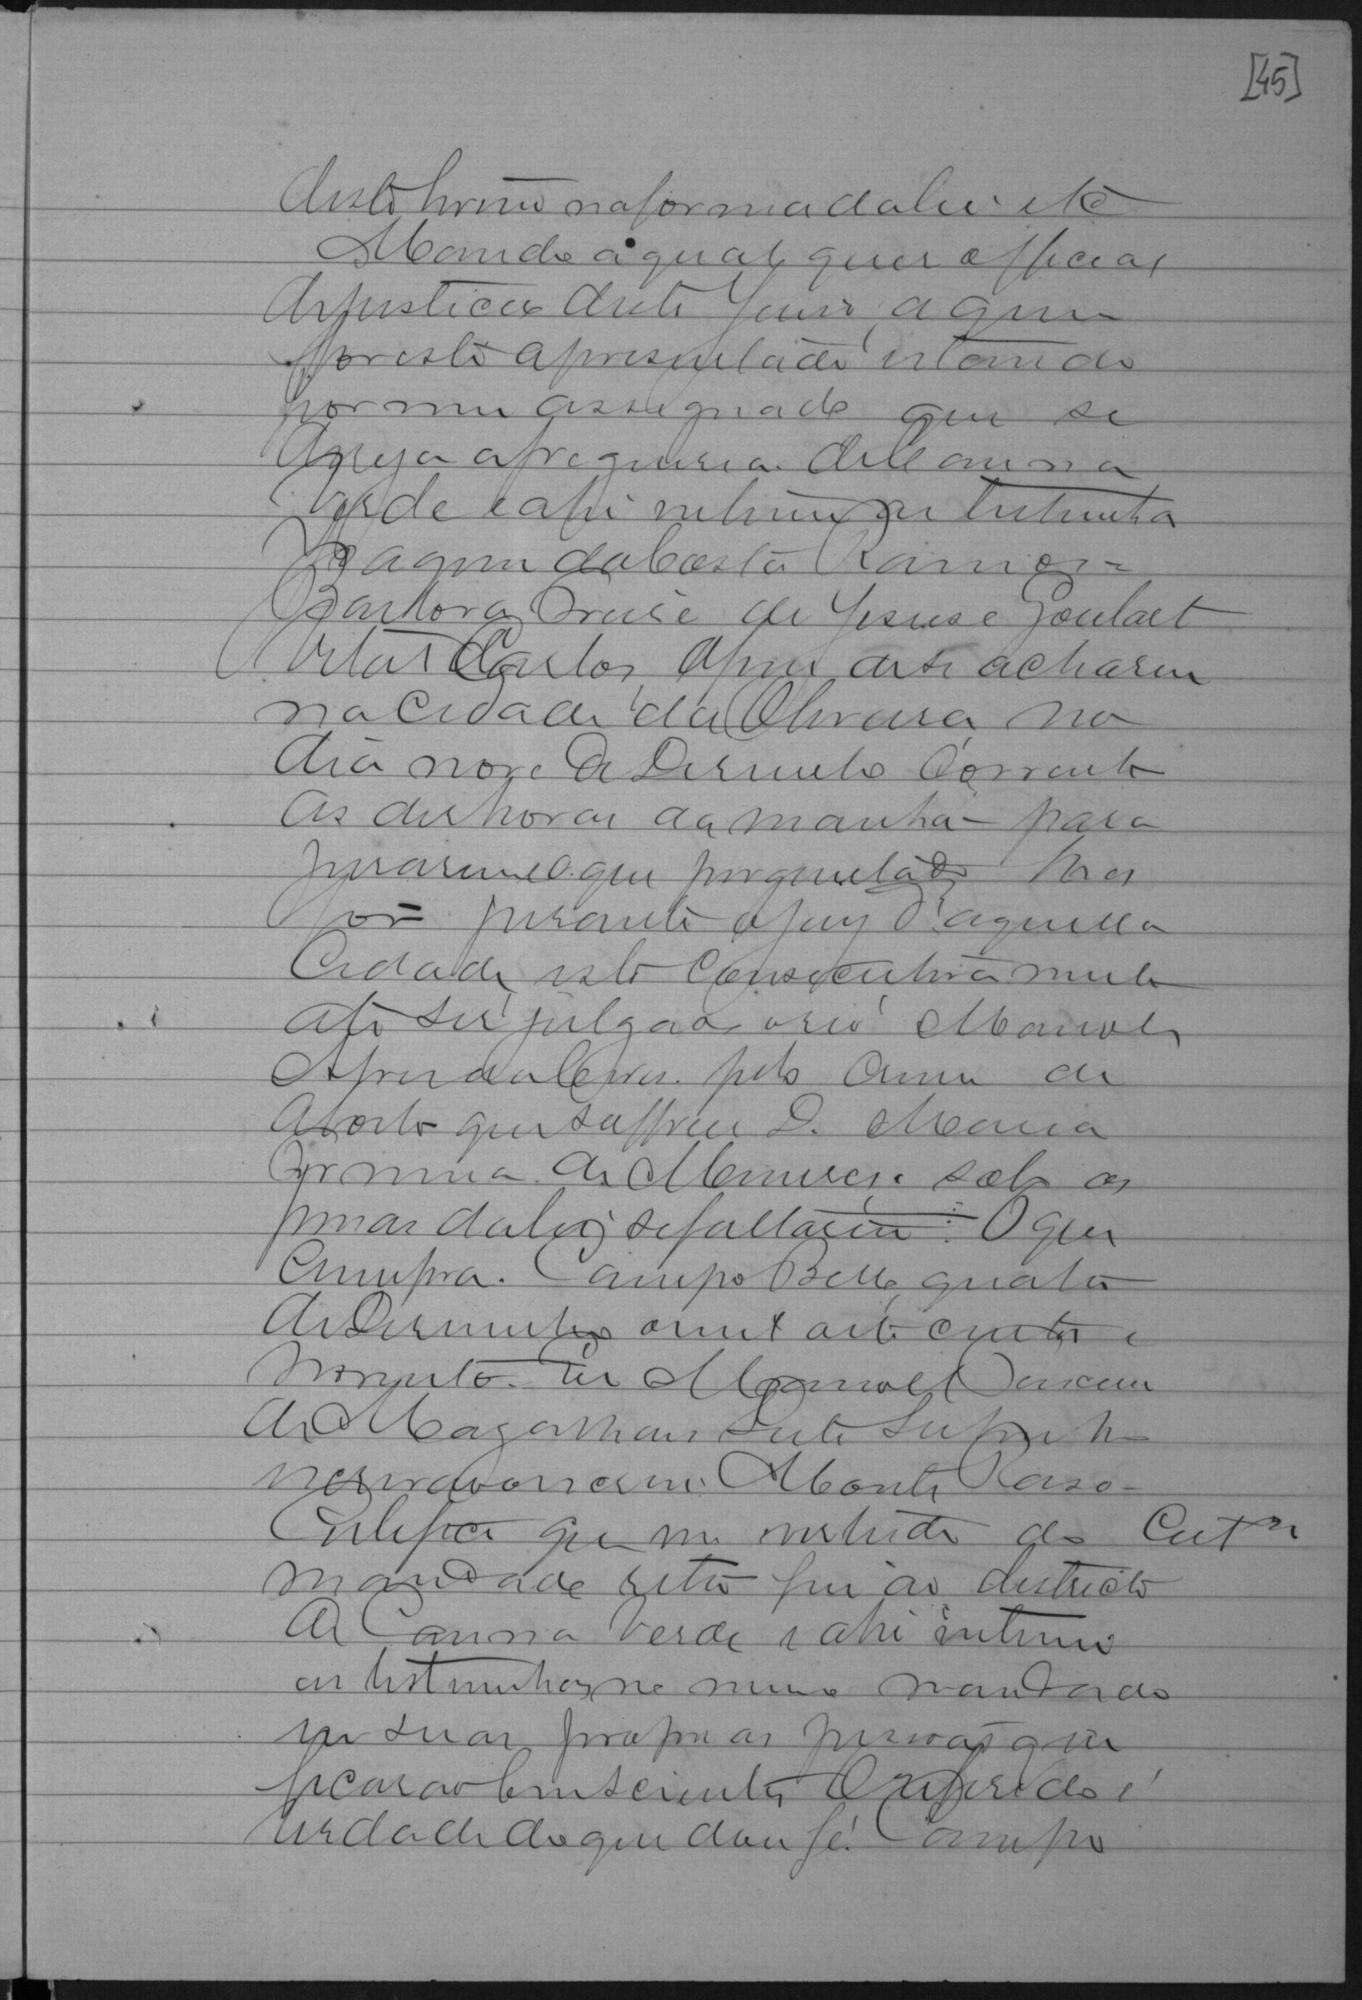 [45]
deste termo na forma da lei etc
Mando a qualquer official
de justiça deste Juizo, a quem
for este apresentado estando
por mim assignado que se
dirija a freguesia de Canna
Verde e ahi intime as testemunha
Joaquim da Costa Ramos =
de Jesus e Goulart
Carlos, afim de se acharem
na Cidade da Oliveira no
dia nove de Desembro Corrente
as des horas da manhã para
jurarem o que perguntado lhes
for perante o Juiz d'aquella
Cidade, isto Consecutivamente
até ser julgado o reo Manoel
pelo crime de
aborto que soffreu D. Maria
de Menezes sob as
penas da lei se faltarem. O que
Cumpra. Campo Bello, quatro
de Desembro de mil oito centos e
noventa. Eu Manoel
de Magalhães
escrevi Monte Raso -
Certifico que em virtude do Cert.m
mandado retro fui ao districto
de Canna Verde e ahi intimei
as testemunhas no mesmo mandado
em suas proprias pessoas que
ficarão bem scientes O referido é
verdade do que dou fé. Campo